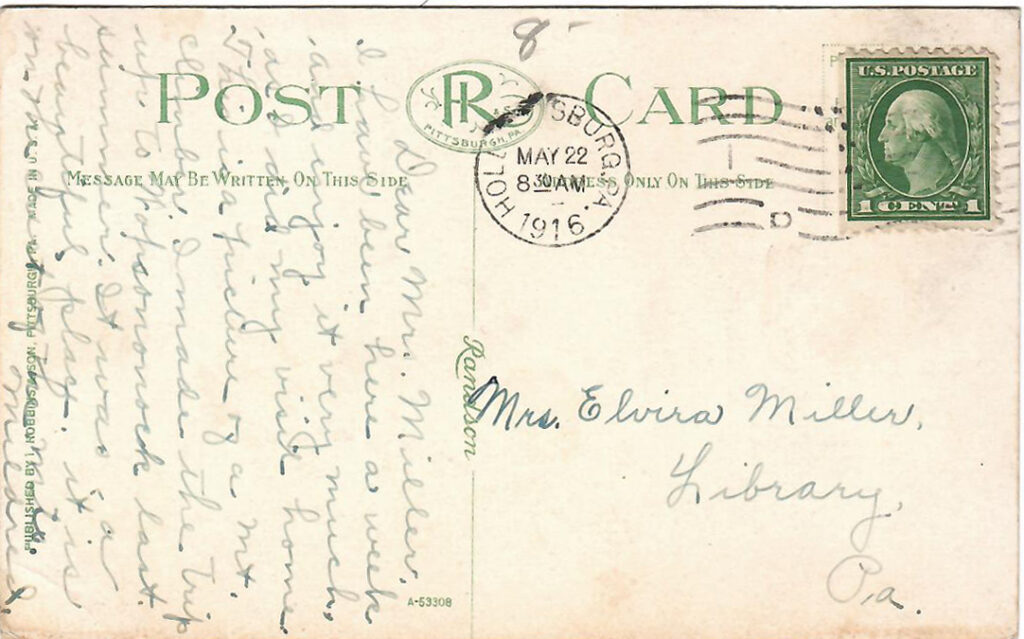 8
POST CARD
PR
PITTSBURGH, PA.
U.S. POSTAGE
1 CENT 1
SBURG, PA.
MAY 22
8 30 AM
1916
MESSAGE MAY BE WRITTEN ON THIS SIDE
ADDRESS ONLY ON THIS SIDE
Dear Mrs. Miller,
I have been here a week
and enjoy it very much,
and as my visit home
This is a picture of a Mt.
climber. I made the trip
up to Wopsonock last
summer. It was a
beautiful place. it is
on
Mildred.
PUBLISHED BY I. ROBBINS & SON, PITTSBURGH, PA. MADE IN U.S.A.
Randson
Mrs. Elvira Miller,
Library,
Pa.
A-53308